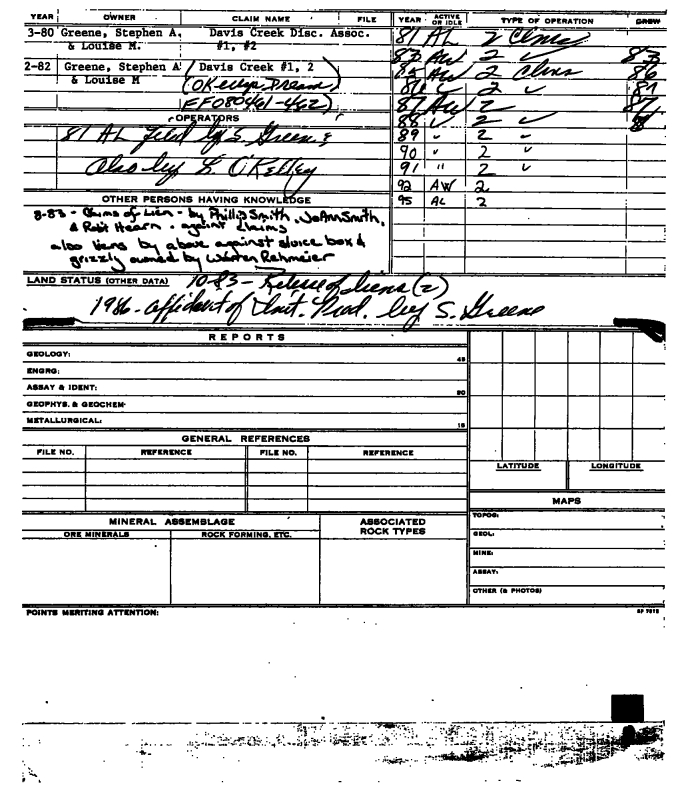 YEAR OWNER CLAIM NAME FILE
3-80 Greene, Stephen A. Davis Creek Disc. Assoc.
& Louise M. #1, #2
2-82 Greene, Stephen A Davis Creek #1, 2
& Louise M (OKelleys Dream)
FF080461-462)
OPERATORS
81 AL filed by S. Greene &
Also by L O'Kelley
OTHER PERSONS HAVING KNOWLEDGE
8-83 - Claims of Lien - by Phillis Smith, JoAnn Smith,
& Robt Hearn - against claims
also liens by above against sluice box &
grizzly owned by Warren Rehmeier
YEAR ACTIVE OR IDLE TYPE OF OPERATION
81 AL 2 Clms
83 AW 2 " 83
85 AW 2 Clms 86
86 " 2 " 87
87 AW 2 87
88 " 2 "
89 " 2 "
90 " 2 "
91 " 2 "
92 AW 2
95 AL 2
LAND STATUS (OTHER DATA) 10-83 - Release of liens (2)
1986 - affidavit of Prod. by S. Greene
REPORTS
GEOLOGY: 45
ENGRG:
ASSAY & IDENT: 30
GEOPHYS. & GEOCHEM-
METALLURGICAL: 15
GENERAL REFERENCES
FILE NO. REFERENCE FILE NO. REFERENCE
LATITUDE LONGITUDE
MAPS
TOPOG:
GEOL:
MINE:
ASSAY:
OTHER (& PHOTOS)
MINERAL ASSEMBLAGE
ORE MINERALS ROCK FORMING, ETC.
ASSOCIATED
ROCK TYPES
POINTS MERITING ATTENTION: